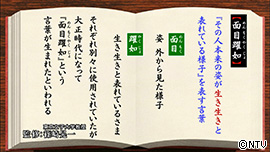 【面目躍如】
「その人本来の姿が生き生きと
表れている様子」を表す言葉
面目
姿 外から見た様子
躍如
生き生きと表れているさま
それぞれ別々に使用されていたが
大正時代になって
「面目躍如」という
言葉が生まれたといわれる
©NTV